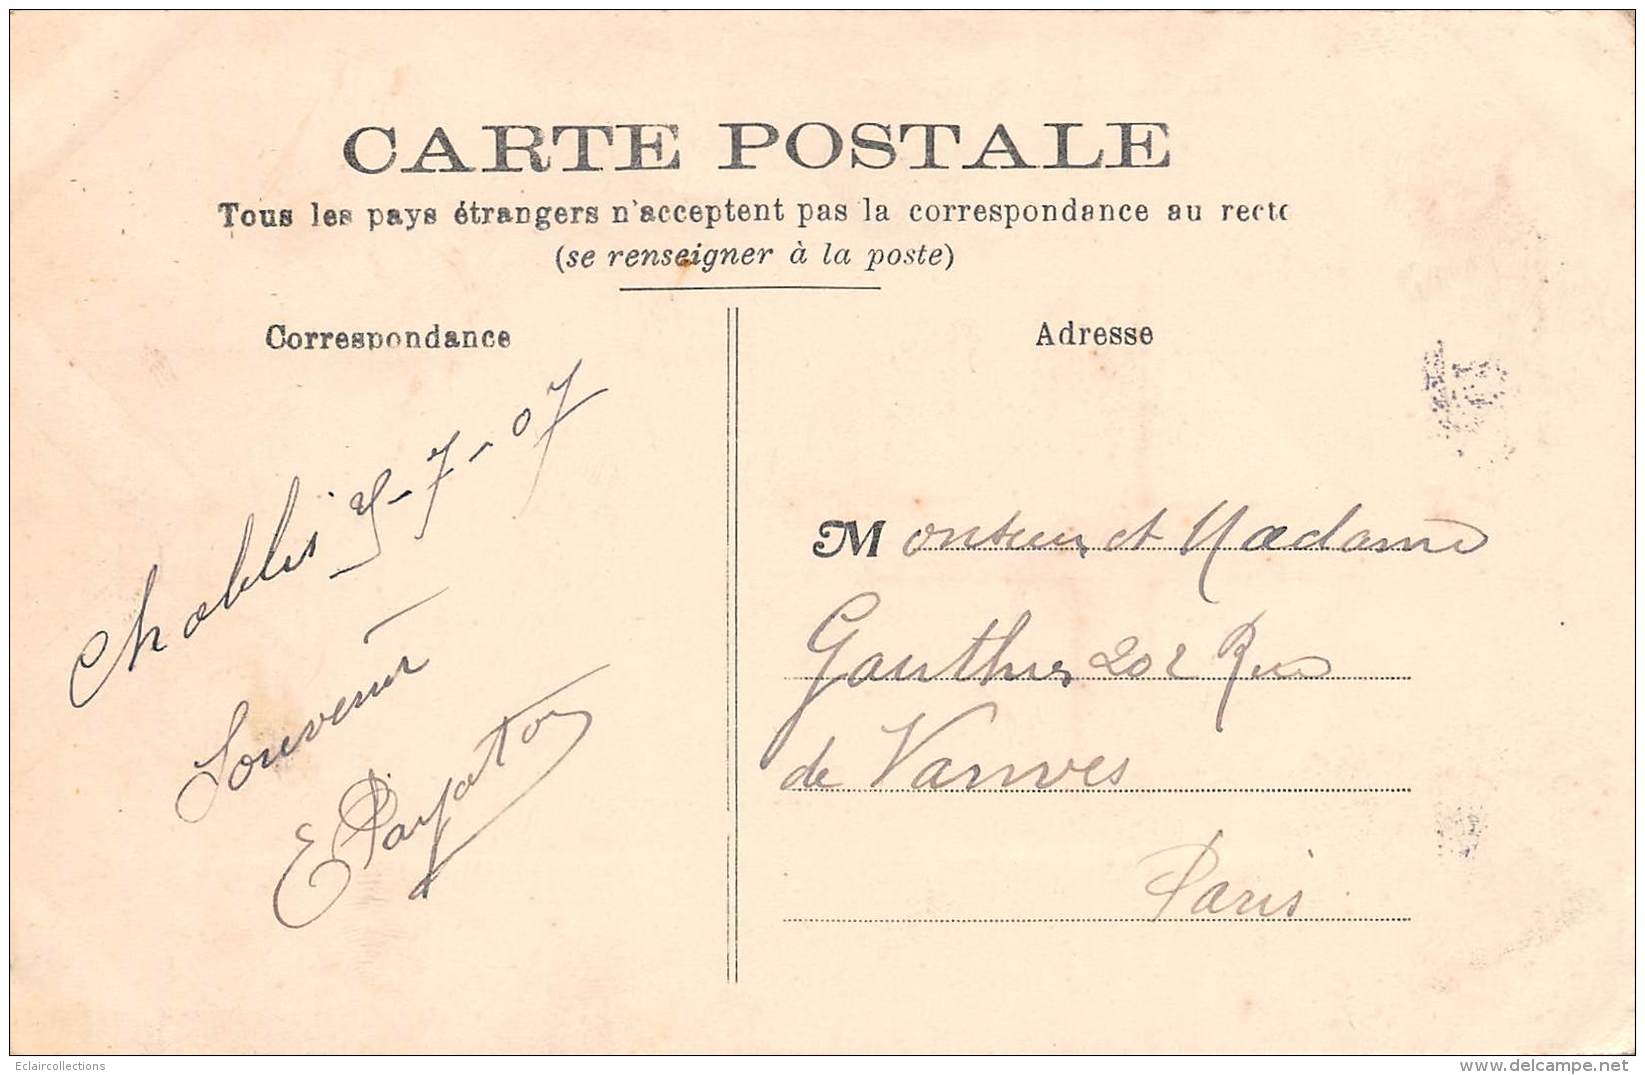 CARTE POSTALE
Tous les pays étrangers n'acceptent pas la correspondance au recto
(se renseigner à la poste)
Correspondance
Chablis 5-7-07
Souvenir
E Payaton
Adresse
Monsieur et Madame
Gauthier 202 Rue
de Vanves
Paris
Eclaircollections
www.delcampe.net